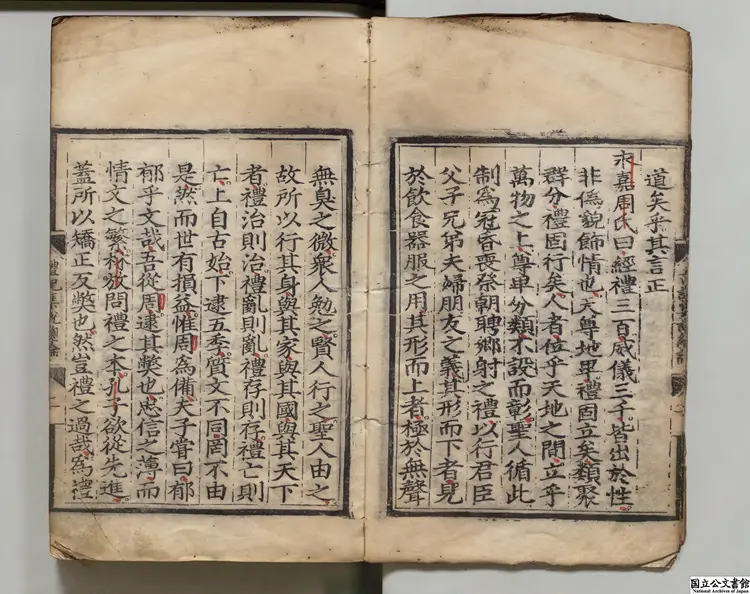 道矣乎其言正
永嘉周氏曰經禮三百威儀三千皆出於性
非僞貌飾情也天尊地卑禮固立矣類聚
群分禮固行矣人者位乎天地之間立乎
萬物之上尊卑分類不設而彰聖人循此
制爲冠昏喪祭朝聘鄉射之禮以行君臣
父子兄弟夫婦朋友之義其形而下者見
於飮食器服之用其形而上者極於無聲
無臭之微衆人勉之賢人行之聖人由之
故所以行其身與其家與其國與其天下
者禮治則治禮亂則亂禮存則存禮亡則
亡上自古始下逮五季質文不同罔不由
是然而世有損益惟周爲備夫子嘗曰郁
郁乎文哉吾從周逮其獘也忠信之薄而
情文之繁林放問禮之本孔子欲從先進
蓋所以矯正反獘也然豈禮之過哉爲禮
国立公文書館
National Archives of Japan